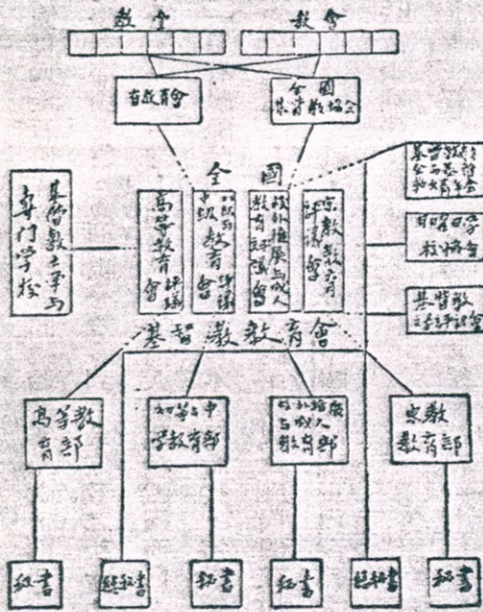 教會
教會
省教育會
全國
基督教協会
全國
基督教大学与
專門学校
高等教育評議會
初級与中級教育評議會
校外推廣与成人教育評議會
宗教教育評議會
主日学
基督教
基督教教育會
高等教育部
初等与中学教育部
校外推廣与成人教育部
宗教教育部
秘書
總秘書
秘書
秘書
總秘書
秘書